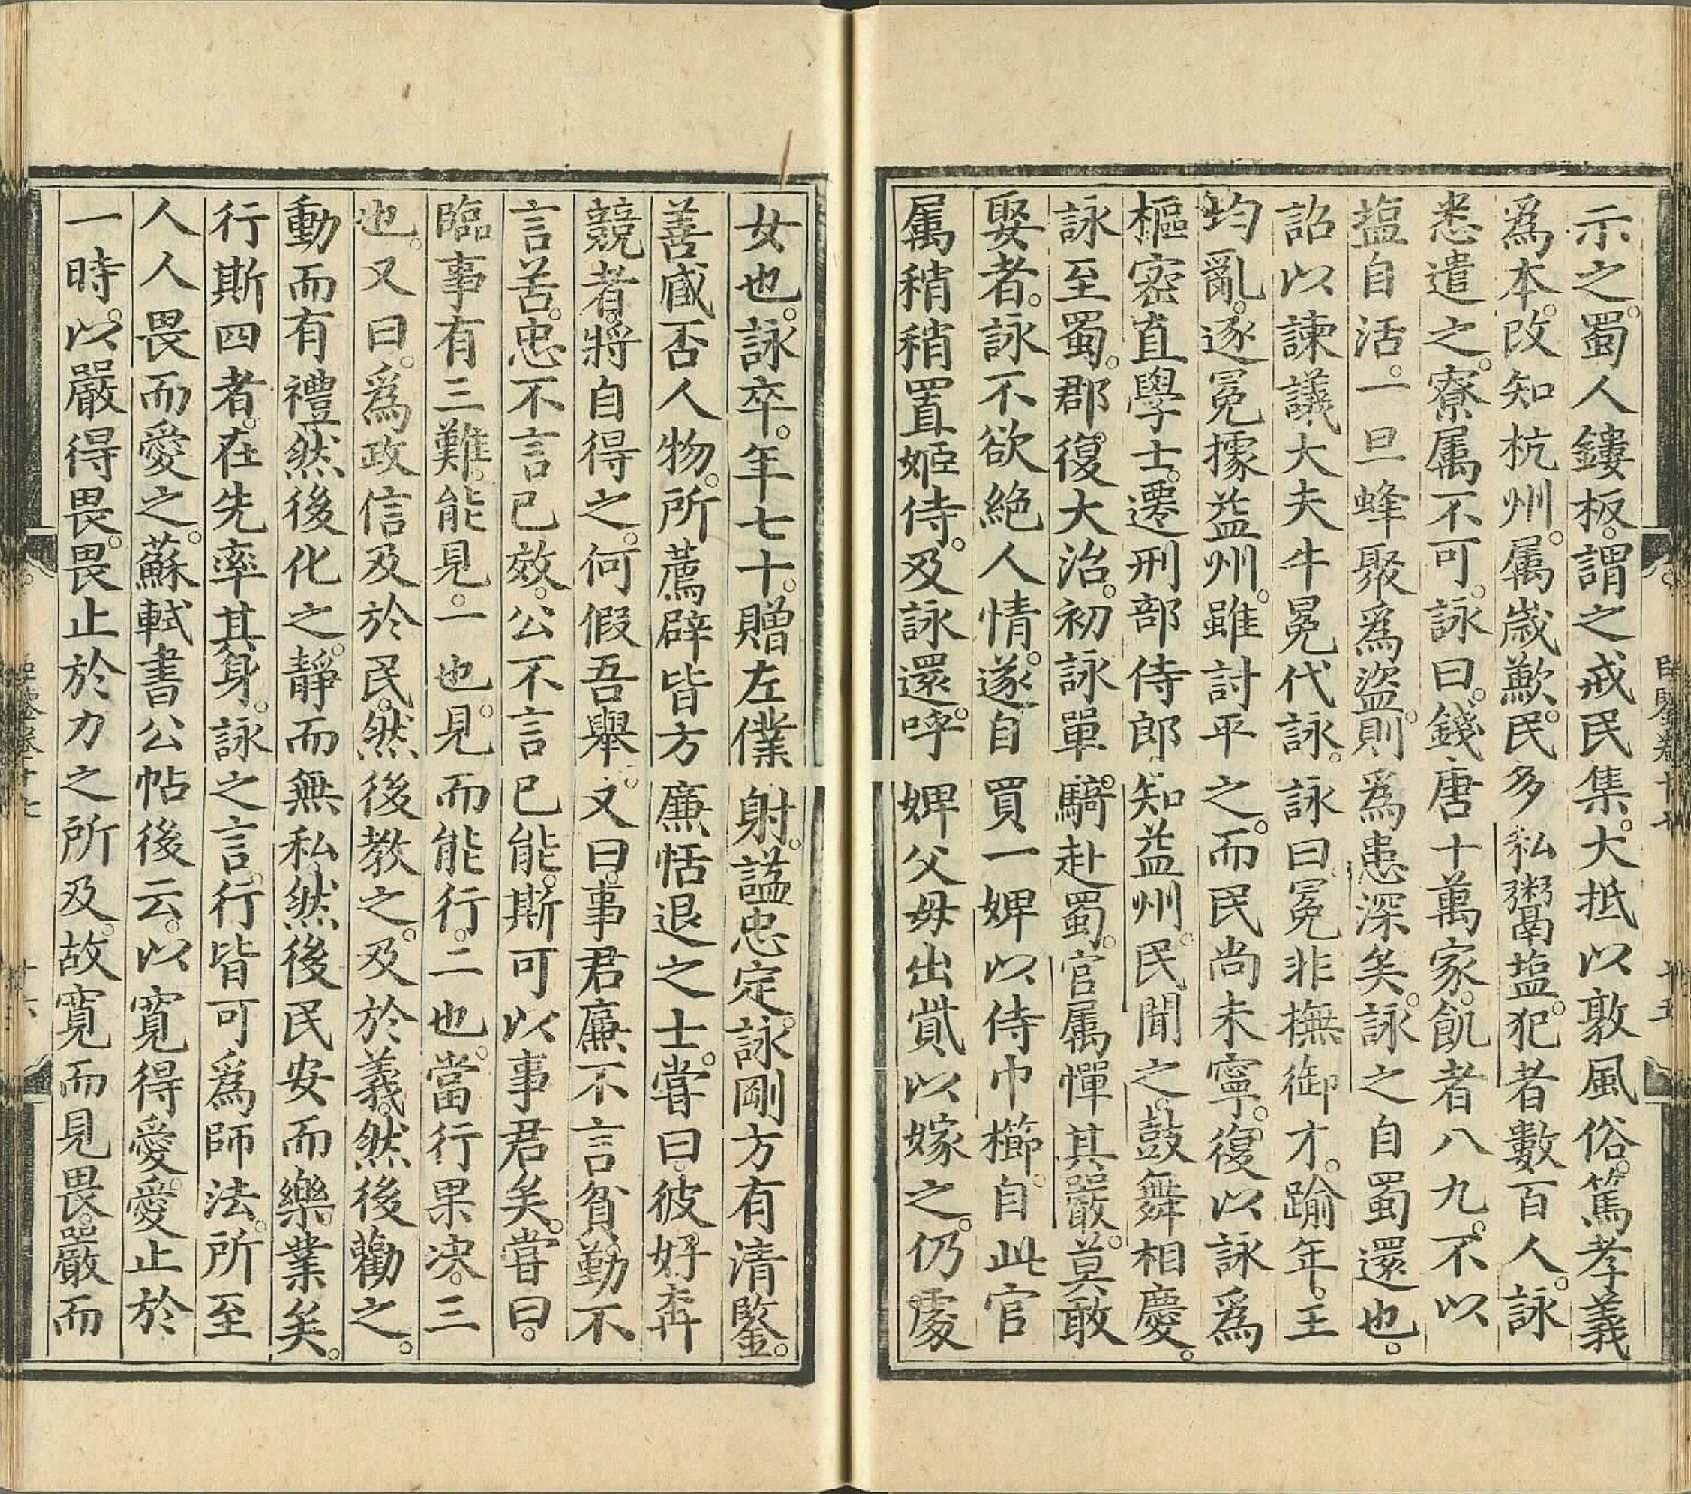 示之。蜀人鏤板。謂之戒民集。大抵以敦風俗。篤孝義
爲本。改知杭州。属歳歉。民多私鬻塩。犯者數百人。詠
悉遣之。寮属不可。詠曰。錢唐十萬家。飢者八九。不以
塩自活。一旦蜂聚爲盜。則爲患深矣。詠之自蜀還也。
詔以諫議大夫牛冕代詠。詠曰。冕非撫御才。踰年。王
均亂。逐冕據益州。雖討平之。而民尚未寧。復以詠爲
樞密直學士。遷刑部侍郎知益州。民聞之。鼓舞相慶。
詠至蜀。郡復大治。初詠單騎赴蜀。官属憚其嚴。莫敢
娶者。詠不欲絶人情。遂自買一婢以侍巾櫛。自此官
属稍稍置姬侍。及詠還。呼婢父母出貲以嫁之。仍處
女也。詠卒。年七十。贈左僕射。謚忠定。詠剛方有清鑒。
善臧否人物。所薦辟皆方廉恬退之士。嘗曰。彼好奔
競者。將自得之。何假吾舉。又曰。事君廉不言貧。勤不
言苦。忠不言已效。公不言已能。斯可以事君矣。嘗曰。
臨事有三難。能見。一也。見而能行。二也。當行果决。三
也。又曰。爲政信及於民。然後教之。及於義。然後勸之。
動而有禮。然後化之。靜而無私。然後民安而樂業矣。
行斯四者。在先率其身。詠之言行皆可爲師法。所至
人人畏而愛之。蘇軾書公帖後云。以寬得愛。愛止於
一時。以嚴得畏。畏止於力之所及。故寬而見畏。嚴而